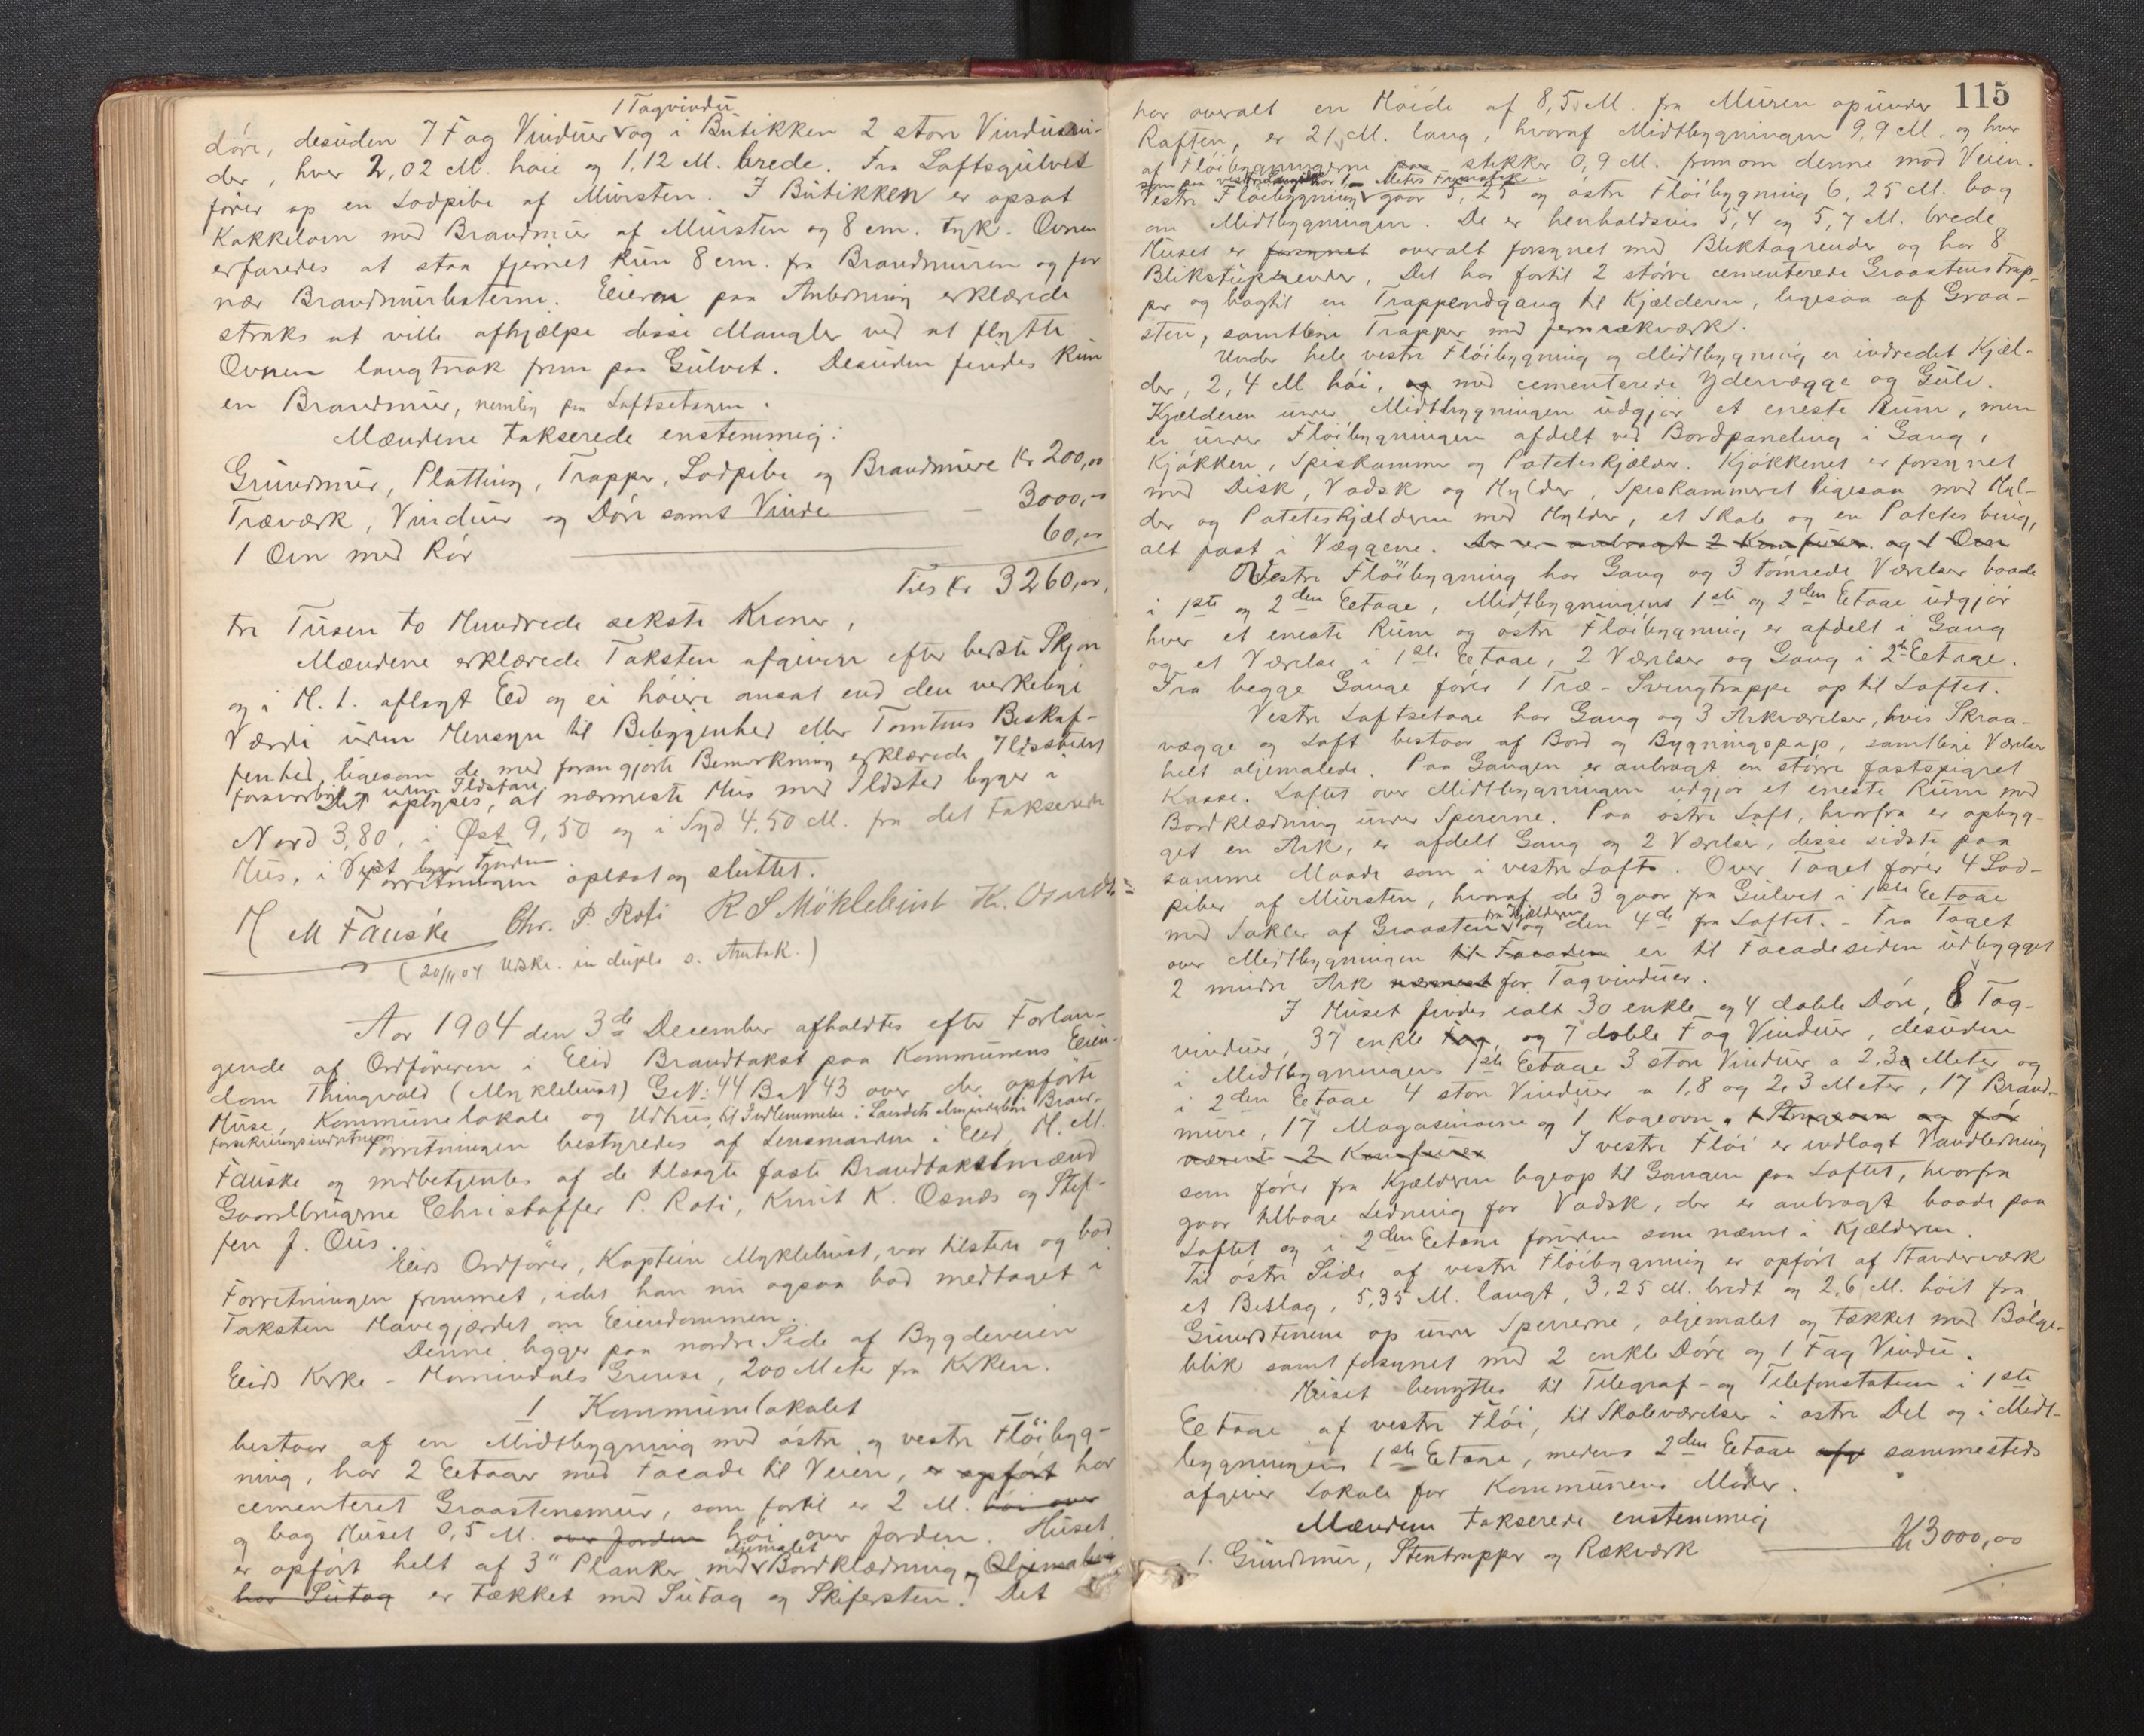 1 Tagvindu
döre, desuden 7 Fag Vinduer og i Butikken 2 store Vindusru-
der, hver 2,02 M. höie og 1,12 M. brede. Fra Loftsgulvet
förer op en Lodpibe af Mursten. I Butikken er opsat
Kakkelovn med Brandmur af Mursten og 8 cm. tyk. Ovnen
erfaredes at staa fjernet kun 8 cm. fra Brandmuren og for
nær Brandmurlisterne. Eieren paa Anledning erklærede
straks at ville afhjælpe disse Mangler ved at flytte
Ovnen langtnok frem paa Gulvet. Desuden findes kun
en Brandmur, nemlig paa Loftsetagen.
Mændene takserede enstemmig:
Grundmur, Platting, Trapper, Lodpibe og Brandmure Kr 200,00
Træværk, Vinduer og Döre samt Vinde — 3000,00
1 Ovn med Rör 60,00
Tils kr 3260,00,
tre Tusen to Hundrede seksti Kroner,
Mændene erklærede Taksten afgiven efter bedste Skjön
og i H. t. aflagt Eed og ei höiere ansat end den verkelige
Værdi uden Hensyn til Beliggenhed eller Tomtens Beskaf-
fenhed, ligesom de med foran gjorte Bemerkning erklærede Ildsstedet
forsvarligt uden Ildsfare.
Det oplyses, at nærmeste Hus med Ildsted ligger i
Nord 3,80, i Øst 9,50 og i Syd 4,50 M. fra det takserede
Hus, i Vest ligger Fjorden.
Forretningen oplæst og sluttet.
H M Fauske Chr. P. Roti R S Möklebust K. Osnes
(20/11 04 Udsk. in duplo s. Amtsk.)
Aar 1904 den 3de December afholdtes efter Forlan-
gende af Ordföreren i Eid Brandtakst paa Kommunens Eien-
dom Thingvold (Myklebust) G.N. 44 B.N 43 over de opförte
Huse, Kommunelokale og Udhus, til Indlemmelse i Landets almindelige Brand-
forsikringsindretning
Forretningen bestyredes af Lensmanden i Eid, H. M.
Fauske og medbetjentes af de tilsagte faste Brandtakstmænd
Gaardbrugerne Christoffer P. Roti, Knut K. Osnes og Stef-
fen J. Ous.
Eids Ordförer, Kaptein Myklebust, var tilstede og bad
Forretningen fremmet, idet han nu ogsaa bad medtaget i
Taksten Havegjærdet om Eiendommen.
Denne ligger paa nordre Side af Bygdeveien
Eids Kirke - Hornindals Grense, 200 Meter fra Kirken.
1 Kommunelokalet
bestaar af en Midtbygning med östre og vestre Flöibyg-
ning, har 2 Eetager med Facade til Veien, er opfört har
cementeret Graastensmur, som fortil er 2 M. höi over
og bag Huset 0,5 M. over Jorden höi over Jorden. Huset
er opfört helt af 3" Planker med oljemalet Bordklædning og Oljemaling
har Sutag er tækket med Sutag og Skifersten. Det
115
har overalt en Höide af 8,5 M. fra Muren opunder
Raften, er 21, M. lang, hvoraf Midtbygningen 9,9 M. og hver
af Flöibygningerne paa stikker 0,9 M. fremom denne mod Veien.
Vestre Flöibygning gaar 5,25 og östre Flöibygning 6,25 M. bag
om Midtbygningen. De er henholdsvis 5,4 og 5,7 M. brede
Huset er forsynet overalt forsynet med Bliktagrender og har 8
Bliknedlöbsrender. Det har fortil 2 större cementerede Graastenstrap-
per og bagtil en Trappenedgang til Kjælderen, ligesaa af Graa-
sten, samtlige Trapper med Jernrækværk.
Under hele vestre Flöibygning og Midtbygning er indredet Kjæl-
der, 2,4 M höi, og med cementerede Ydervægge og Gulv.
Kjælderen under Midtbygningen udgjör et eneste Rum, men
er under Flöibygningen afdelt ved Bordpaneling i Gang,
Kjökken, Spiskammer og Poteteskjælder. Kjökkenet er forsynet
med Disk, Vadsk og Hylder, Spiskammeret ligesaa med Hyl-
der og Poteteskjælderen med Hylder, et Skab og en Potetesbing,
alt fast i Væggene. Der er anbragt 2 Komfurer og 1 Ovn
Vestre Flöibygning har Gang og 3 tömrede Værelser baade
i 1ste og 2den Eetage, Midtbygningens 1ste og 2den Eetage udgjör
hver et eneste Rum og östre Flöibygning er afdelt i Gang
og et Værelse i 1ste Eetage, 2 Værelser og Gang i 2de Eetage.
Fra begge Gange förer 1 Træ-Svingtrappe op til Loftet.
Vestre Loftsetage har Gang og 3 Arkværelser, hvis Skraa-
vægge og Loft bestaar af Bord og Bygningspap, samtlige Værelser
helt oljemalede. Paa Gangen er anbragt en större fastspigret
Kasse. Loftet over Midtbygningen udgjör et eneste Rum med
Bordklædning under Spererne. Paa östre Loft, hvorfra er opbyg-
get en Ark, er afdelt Gang og 2 Værelser, disse sidste paa
samme Maade som i vestre Loft. Over Taget förer 4 Lod-
piber af Mursten, hvoraf de 3 gaar fra Gulvet i 1ste Eetage
med Sokler af Graasten fra Kjælderen og den 4de fra Loftet. - Fra Taget
over Midtbygningen til Facaden er til Facadesiden udbygget
2 mindre Ark nærmest for Tagvinduer.
I Huset findes ialt 30 enkle og 4 doble Döre, 8 Tag-
vinduer, 37 enkle Fag, og 7 doble Fag Vinduer, desuden
i Midtbygningens 1ste Eetage 3 store Vinduer a 2,30 Meter og
i 2den Eetage 4 store Vinduer a 1,8 og 2,3 Meter, 17 Brand-
mure, 17 Magasinovne og 1 Kogeovn, 1 Strygeovn og för
nævnte 2 Komfurer I vestre Flöi er indlagt Vandledning
som förer fra Kjælderen ligeop til Gangen paa Loftet, hvorfra
gaar tilbage Ledning for Vadsk, der er anbragt baade paa
Loftet og i 2den Eetage foruden som nævnt i Kjælderen.
Til östre Side af vestre Flöibygning er opfört af Standerværk
et Bislag, 5,35 M. langt, 3,25 M. bredt og 2,6 M. höit fra
Grundstenene op under Sperrerne, oljemalet og tækket med Bölge-
blik samt forsynet med 2 enkle Döre og 1 Fag Vindu.
Huset benyttes til Telegraf- og Telefonstation i 1ste
Eetage af vestre Flöi, til Skoleværelser i östre Del og i Midt-
bygningens 1ste Eetage, medens 2den Eetage afg sammesteds
afgiver Lokale for Kommunens Möder.
Mændene takserede enstemmig
1. Grundmur, Stentrapper og Rækværk Kr 3000,00